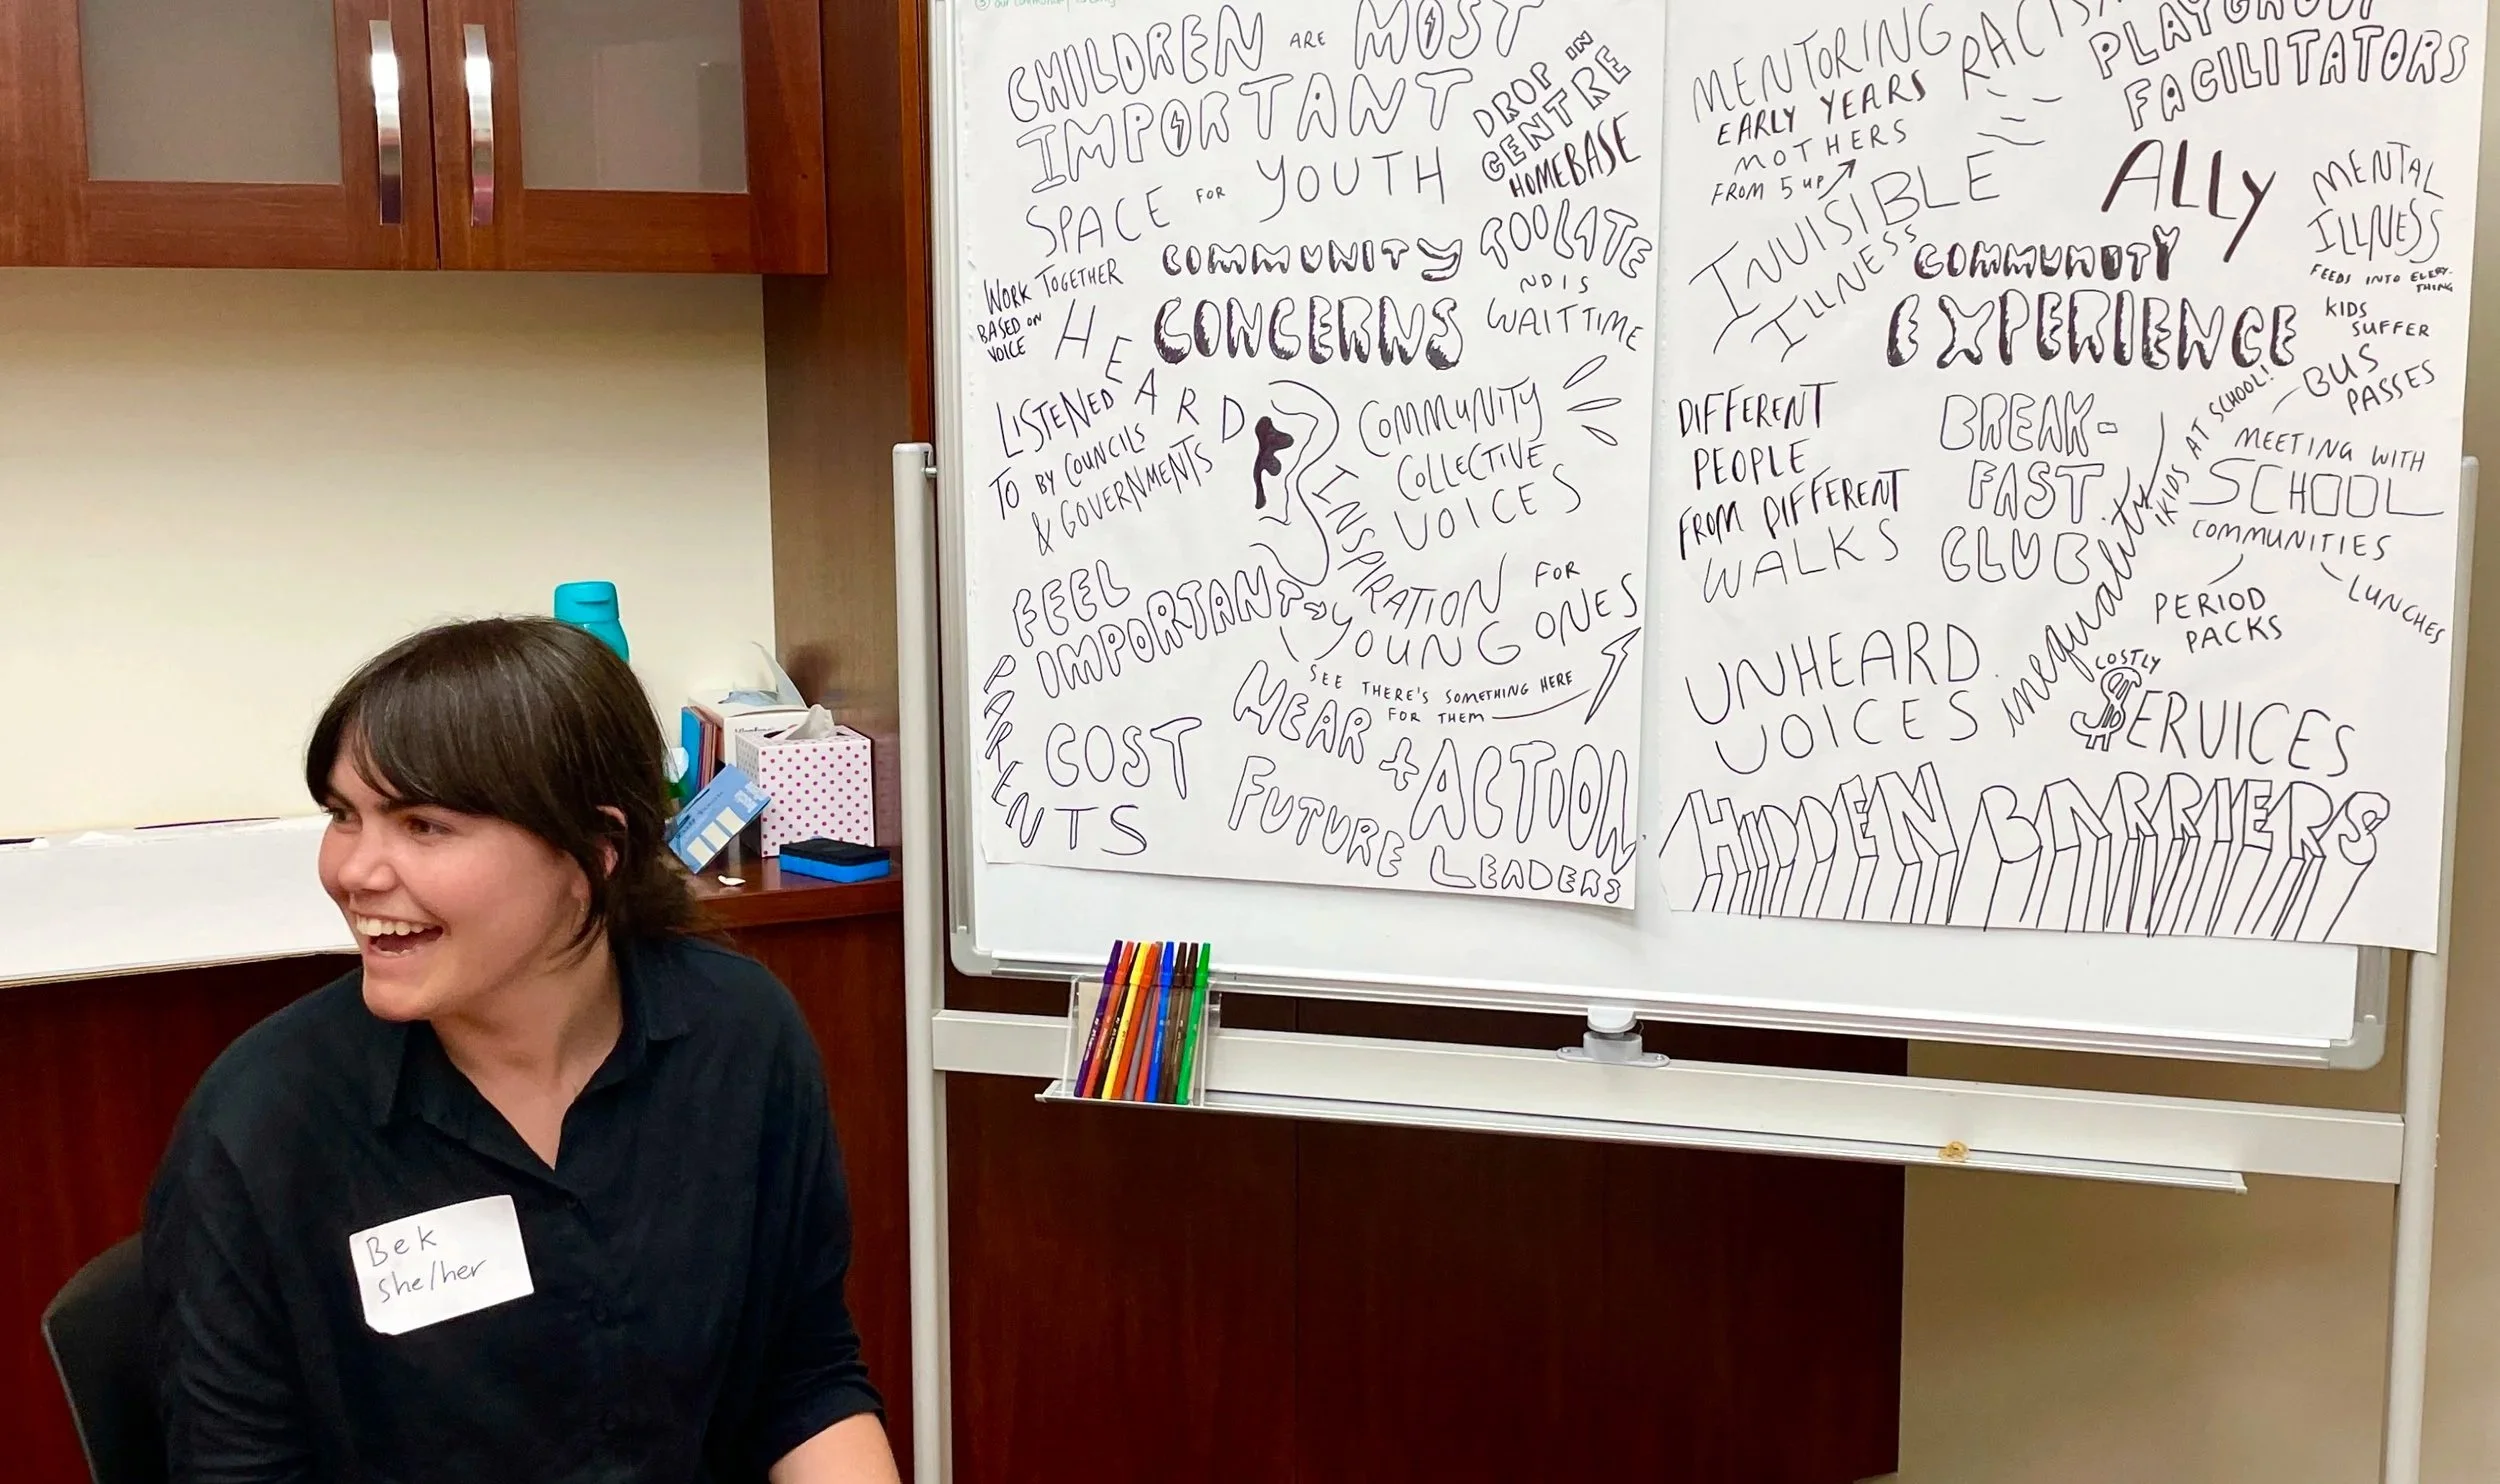 CHILDREN ARE MOST
IMPORTANT
SPACE FOR YOUTH
DROP IN
CENTRE
HOMEBASE
COMMUNITY
CONCERNS
TOO LATE
NDIS
WAIT TIME
WORK TOGETHER
BASED ON
VOICE
HEARD
LISTENED
TO BY COUNCILS
& GOVERNMENTS
COMMUNITY
COLLECTIVE
VOICES
FEEL
IMPORTANT
INSPIRATION FOR
YOUNG ONES
SEE THERE'S SOMETHING HERE
FOR THEM
PARENTS
COST
HEAR + ACTION
FUTURE
LEADERS
MENTORING
EARLY YEARS
MOTHERS
FROM 5 UP
RACISM
PLAYGROUP
FACILITATORS
INVISIBLE
ILLNESS
ALLY
MENTAL
ILLNESS
FEEDS INTO EVERY-
THING
KIDS
SUFFER
COMMUNITY
EXPERIENCE
DIFFERENT
PEOPLE
FROM DIFFERENT
WALKS
BREAK-
FAST
CLUB
KIDS AT SCHOOL!
BUS
PASSES
MEETING WITH
SCHOOL
COMMUNITIES
PERIOD
PACKS
LUNCHES
inequality
UNHEARD
VOICES
COSTLY
$ERVICES
HIDDEN BARRIERS
Bek
she/her